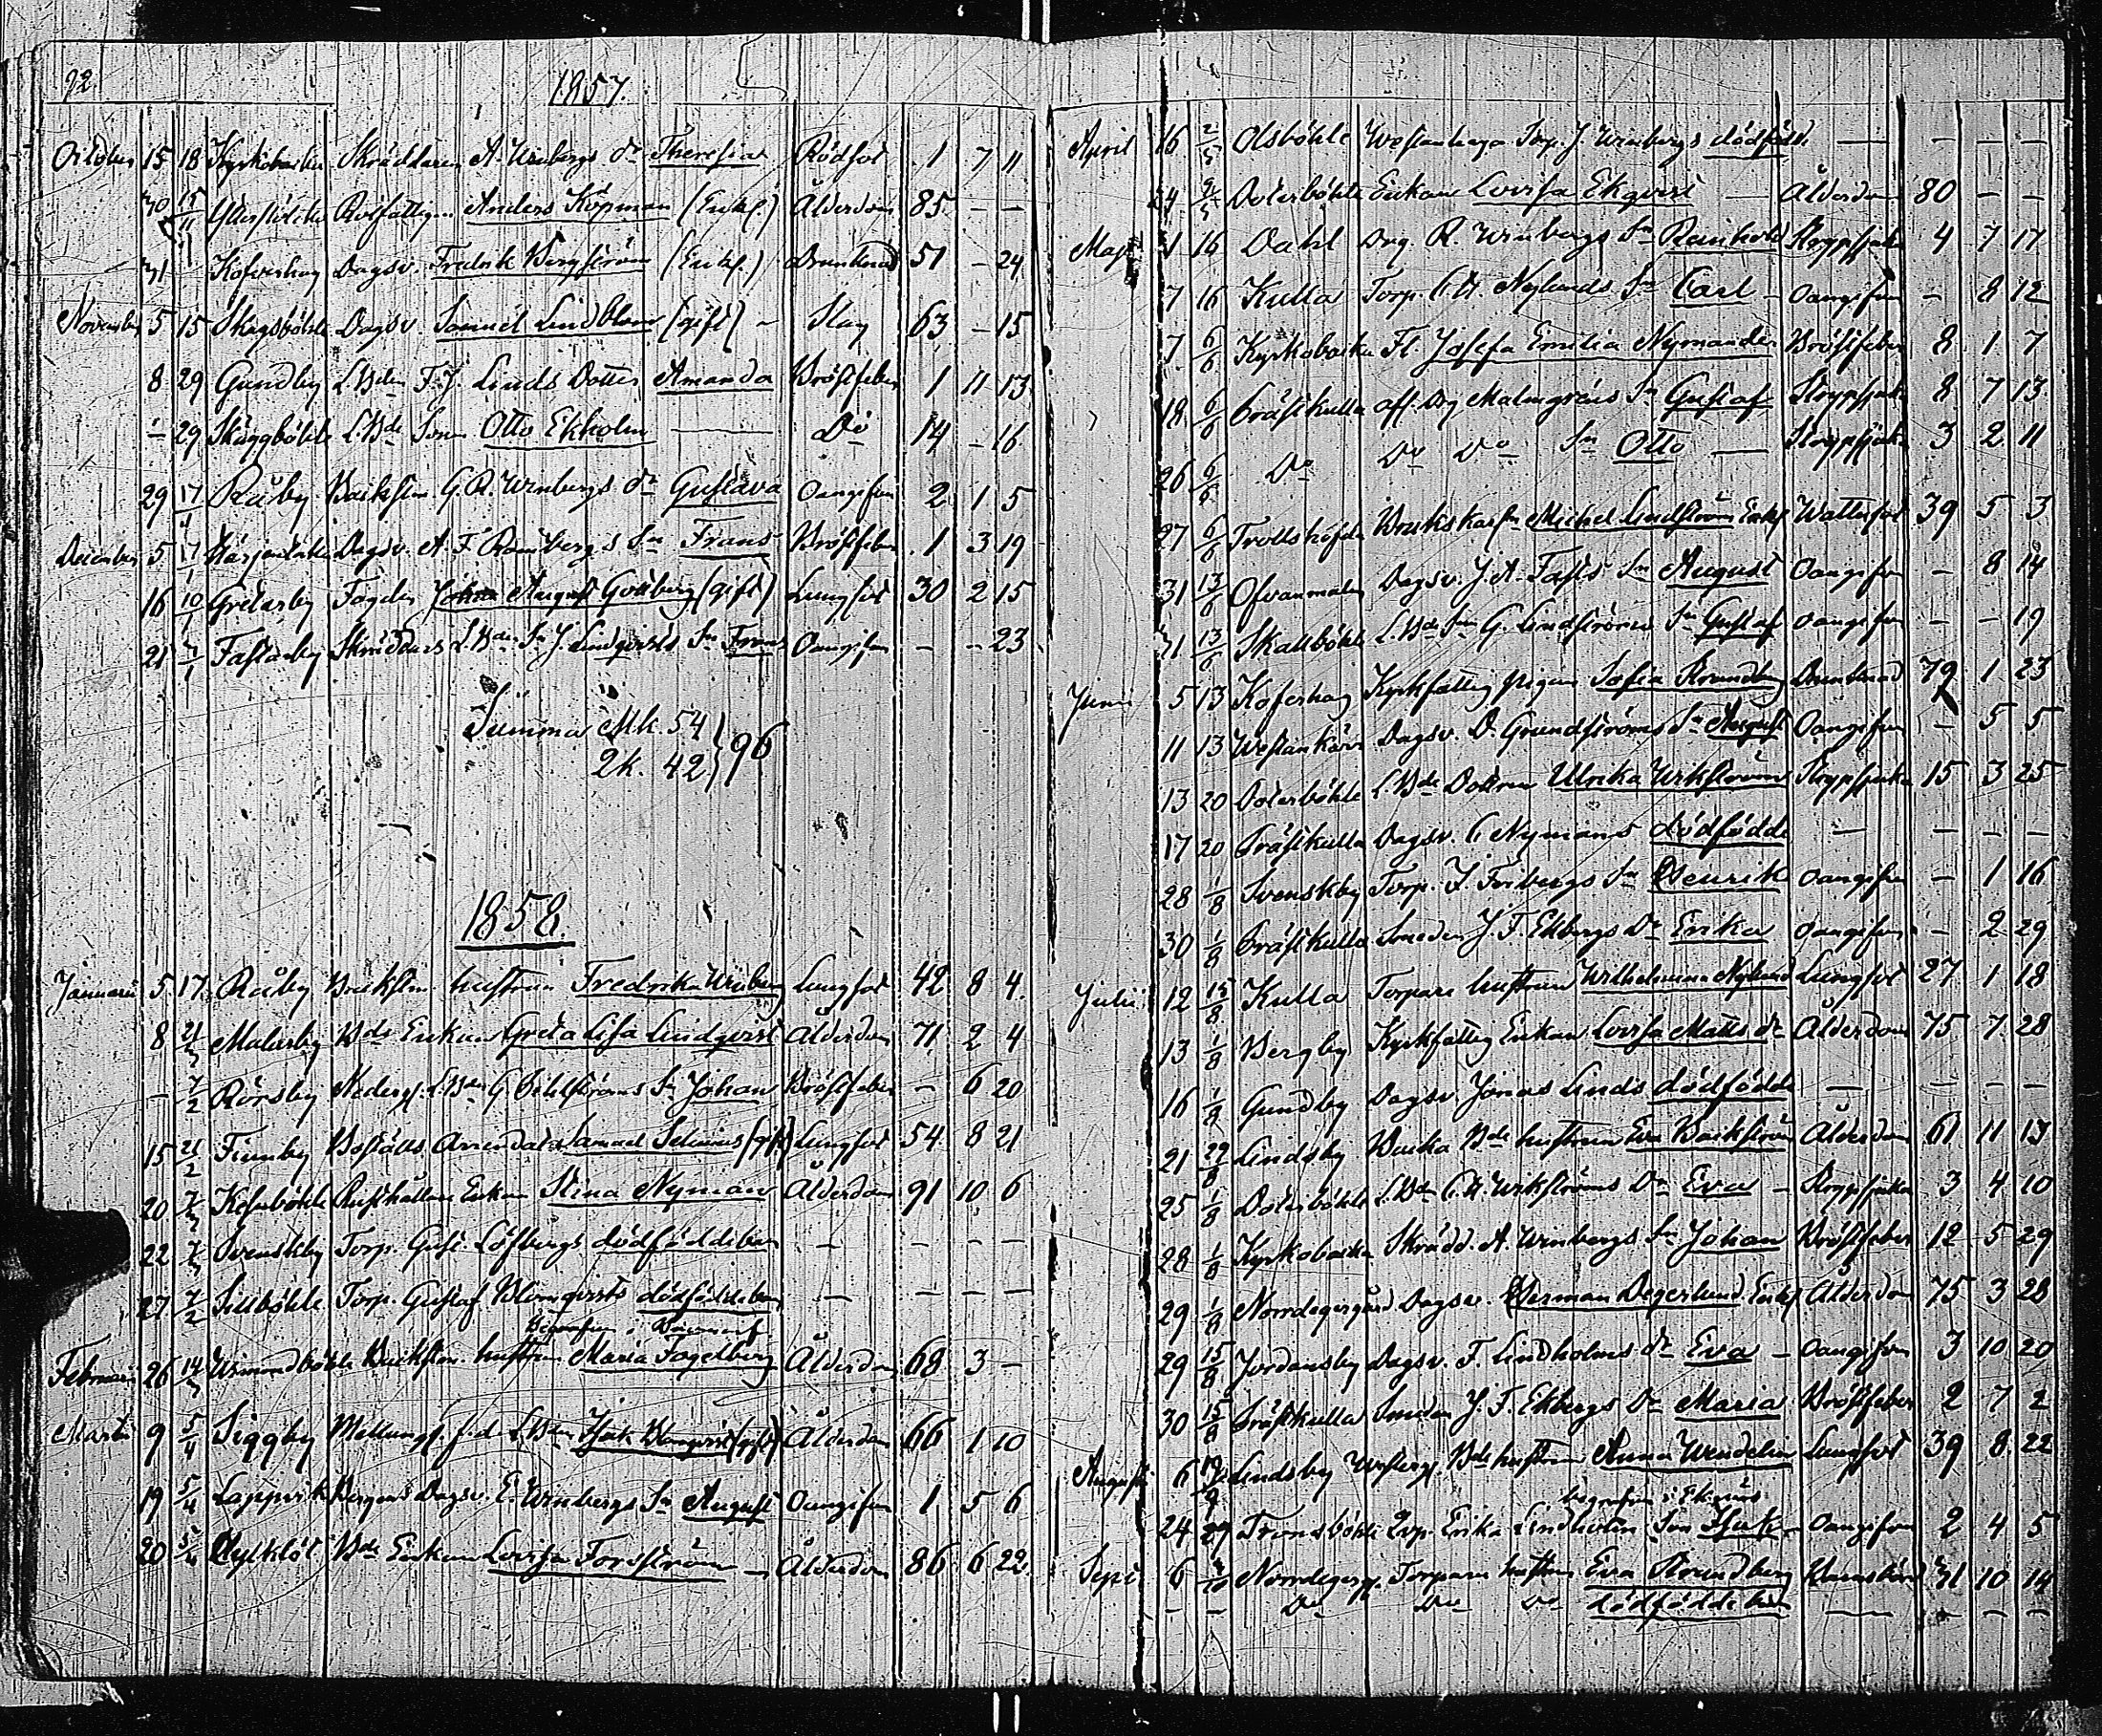 92.
1857.
October 15 18 Kyrkobacka Skräddaren A. Winbergs dr Theresia Rödsot 1 7 11
30 15/11 Ytterjölcke Rotfattig Anders Köpman (Enkl.) Ålderdom 85 — —
31 — Kofverhag Dagsv. Fredrik Bergström (Enkl.) Drunknad 51 — 24
November 5 15 Skogsböhle Dagsv. Samuel Lindblom (gift) — Slag 63 — 15
8 29 Gundby LBden F. J. Linds Dotter Amanda Bröstfeber 1 11 13
— 29 Skäggböhle LBde Sonen Otto Ekholm — Do 14 — 16
29 17/1 Råby Backstm. G. R. Winbergs dr Gustava Oangifven 2 1 5
December 5 17/1 Dagsv. A. F. Rembergs Sn Frans Bröstfeber 1 3 19
16 10/1 Gretarby Fogden Johan August Gottberg (gift) Lungsot 30 2 15
21 /1 Fastarby Skräddars LBde Sn J. Lindqvists Sn Frans Oangifven — — 23
Summa Mk. 54
2k. 42 } 96
1858.
Januari 5 17 Råby Backstm. hustrun Fredrika Winberg Lungsot 42 8 4
8 21/3 Malarby Bde Enkan Greta Lisa Lindqvist Ålderdom 71 2 4
— 7/2 Rörsby Nedergg. LBden G. Sn Johan Bröstfeber — 6 20
15 21/2 Finnby Boställs Arrendat. Samuel Selenius (gift) Lungsot 54 8 21
20 7/3 Rusthållare Enkan Stina Nyman Ålderdom 91 10 6
22 7/3 Svenskby Torp. Gust. Löfbergs dödföddebarn — — — —
27 7/2 Sillböhle Torp. Gustaf Blomqvists dödföddebarn — — — —
Begrafven i
Februari 26 14/3 Backstm. hustrun Maria Fogelberg Ålderdom 68 3 —
Martii 9 5/4 Siggby Mellangg. f.d. LBden Isak Blomqvist (gift) Ålderdom 66 1 10
19 5/4 Lappvik Bergens Dagsv. E. Winbergs Sn August Oangifven 1 5 6
20 5/4 Bde Enkan Lovisa Forsström — Ålderdom 86 6 22
April 16 2/5 Olsböhle Westanhaga Torp. J. Winbergs dödfödd — — — —
24 2/5 Österböhle Enkan Lovisa Ekqvist — Ålderdom 80 — —
Maji 1 16 Dahl Drg. R. Winbergs Sn Reinhold Strypsjuka 4 7 17
7 16 Kulla Torp. C. A. Nylunds Sn Carl — Oangifven — 8 12
7 6/6 Kyrkobacka Fl. Josefa Emilia Nymander Bröstfeber 8 1 7
18 6/6 Prästkulla aff. Drg Malmgréns Sn Gustaf Strypsjuka 8 7 13
26 6/6 Do Do Do Sn Otto — Strypsjuka 3 2 11
27 6/6 Trollshofda Brukskarln Michel Lindström Enkl Wattusot 39 5 3
31 13/6 Ofvanmalm Dagsv. J. A. Fasts Sn August Oangifven — 8 14
31 13/6 Skallböhle LBde Sn G. Lindströms Sn Gustaf Oangifven — — 19
Juni 5 13 Koferhag Kyrkfattig pigan Sofia Strandberg Drunknad 79 1 23
11 13 Westankärr Dagsv. D. Grundströms Sn August Oangifven — 5 5
13 20 Österböhle LBde Dottren Ulrika Wikström Strypsjuka 15 3 25
17 20 Prästkulla Dagsv. C. Nymans dödfödde — — — —
28 1/8 Svenskby Torp. J. Fribergs Sn Henrik Oangifven — 1 16
30 1/8 Prästkulla Smeden J. F. Ekbergs Dr Erika Oangifven — 2 29
Julii 12 15/8 Kulla Torpare hustrun Wilhelmina Nylund Lungsot 27 1 18
13 1/8 Bergby Kyrkfattig Enkan Lovisa Matts dr Ålderdom 75 7 28
16 1/8 Gundby Dagsv. Jonas Linds dödfödde — — — —
21 29/8 Lindsby Backa Bde hustrun Eva Backström Ålderdom 61 11 13
25 1/8 Österböhle LBde C. A. Wikströms Dr Eva — Strypsjuka 3 4 10
28 1/8 Kyrkobacka Skrädd. A. Winbergs Sn Johan Bröstfeber 12 5 29
29 1/8 Norrdegergård Dagsv. Herman Degerlund Enkl Ålderdom 75 3 28
29 15/8 Jordansby Dagsv. F. Lindholms dr Eva — Oangifven 3 10 20
30 15/8 Prästkulla Smeden J. F. Ekbergs Dr Maria Bröstfeber 2 7 2
Augusti 6 19/9 Lindsby Westergg. Bde hustrun Anna Wendelin Lungsot 39 8 22
begrafven i Ekenäs
24 29 Tronsböhle Qvp. Erika Lindholm Son Isak — Oangifven 2 4 5
Sept 6 Norrdegergg. Torpare hustrun Eva Strandberg Barnsbörd 31 10 14
— — Do Do Do dödföddebarn — — — —